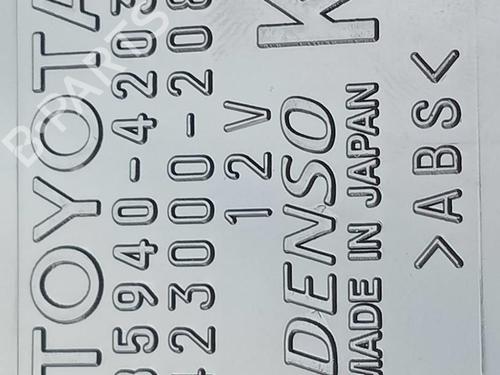 TOYOTA
85940-4203
23000-208
12V
DENSO K
MADE IN JAPAN
>ABS<
B-PARTS